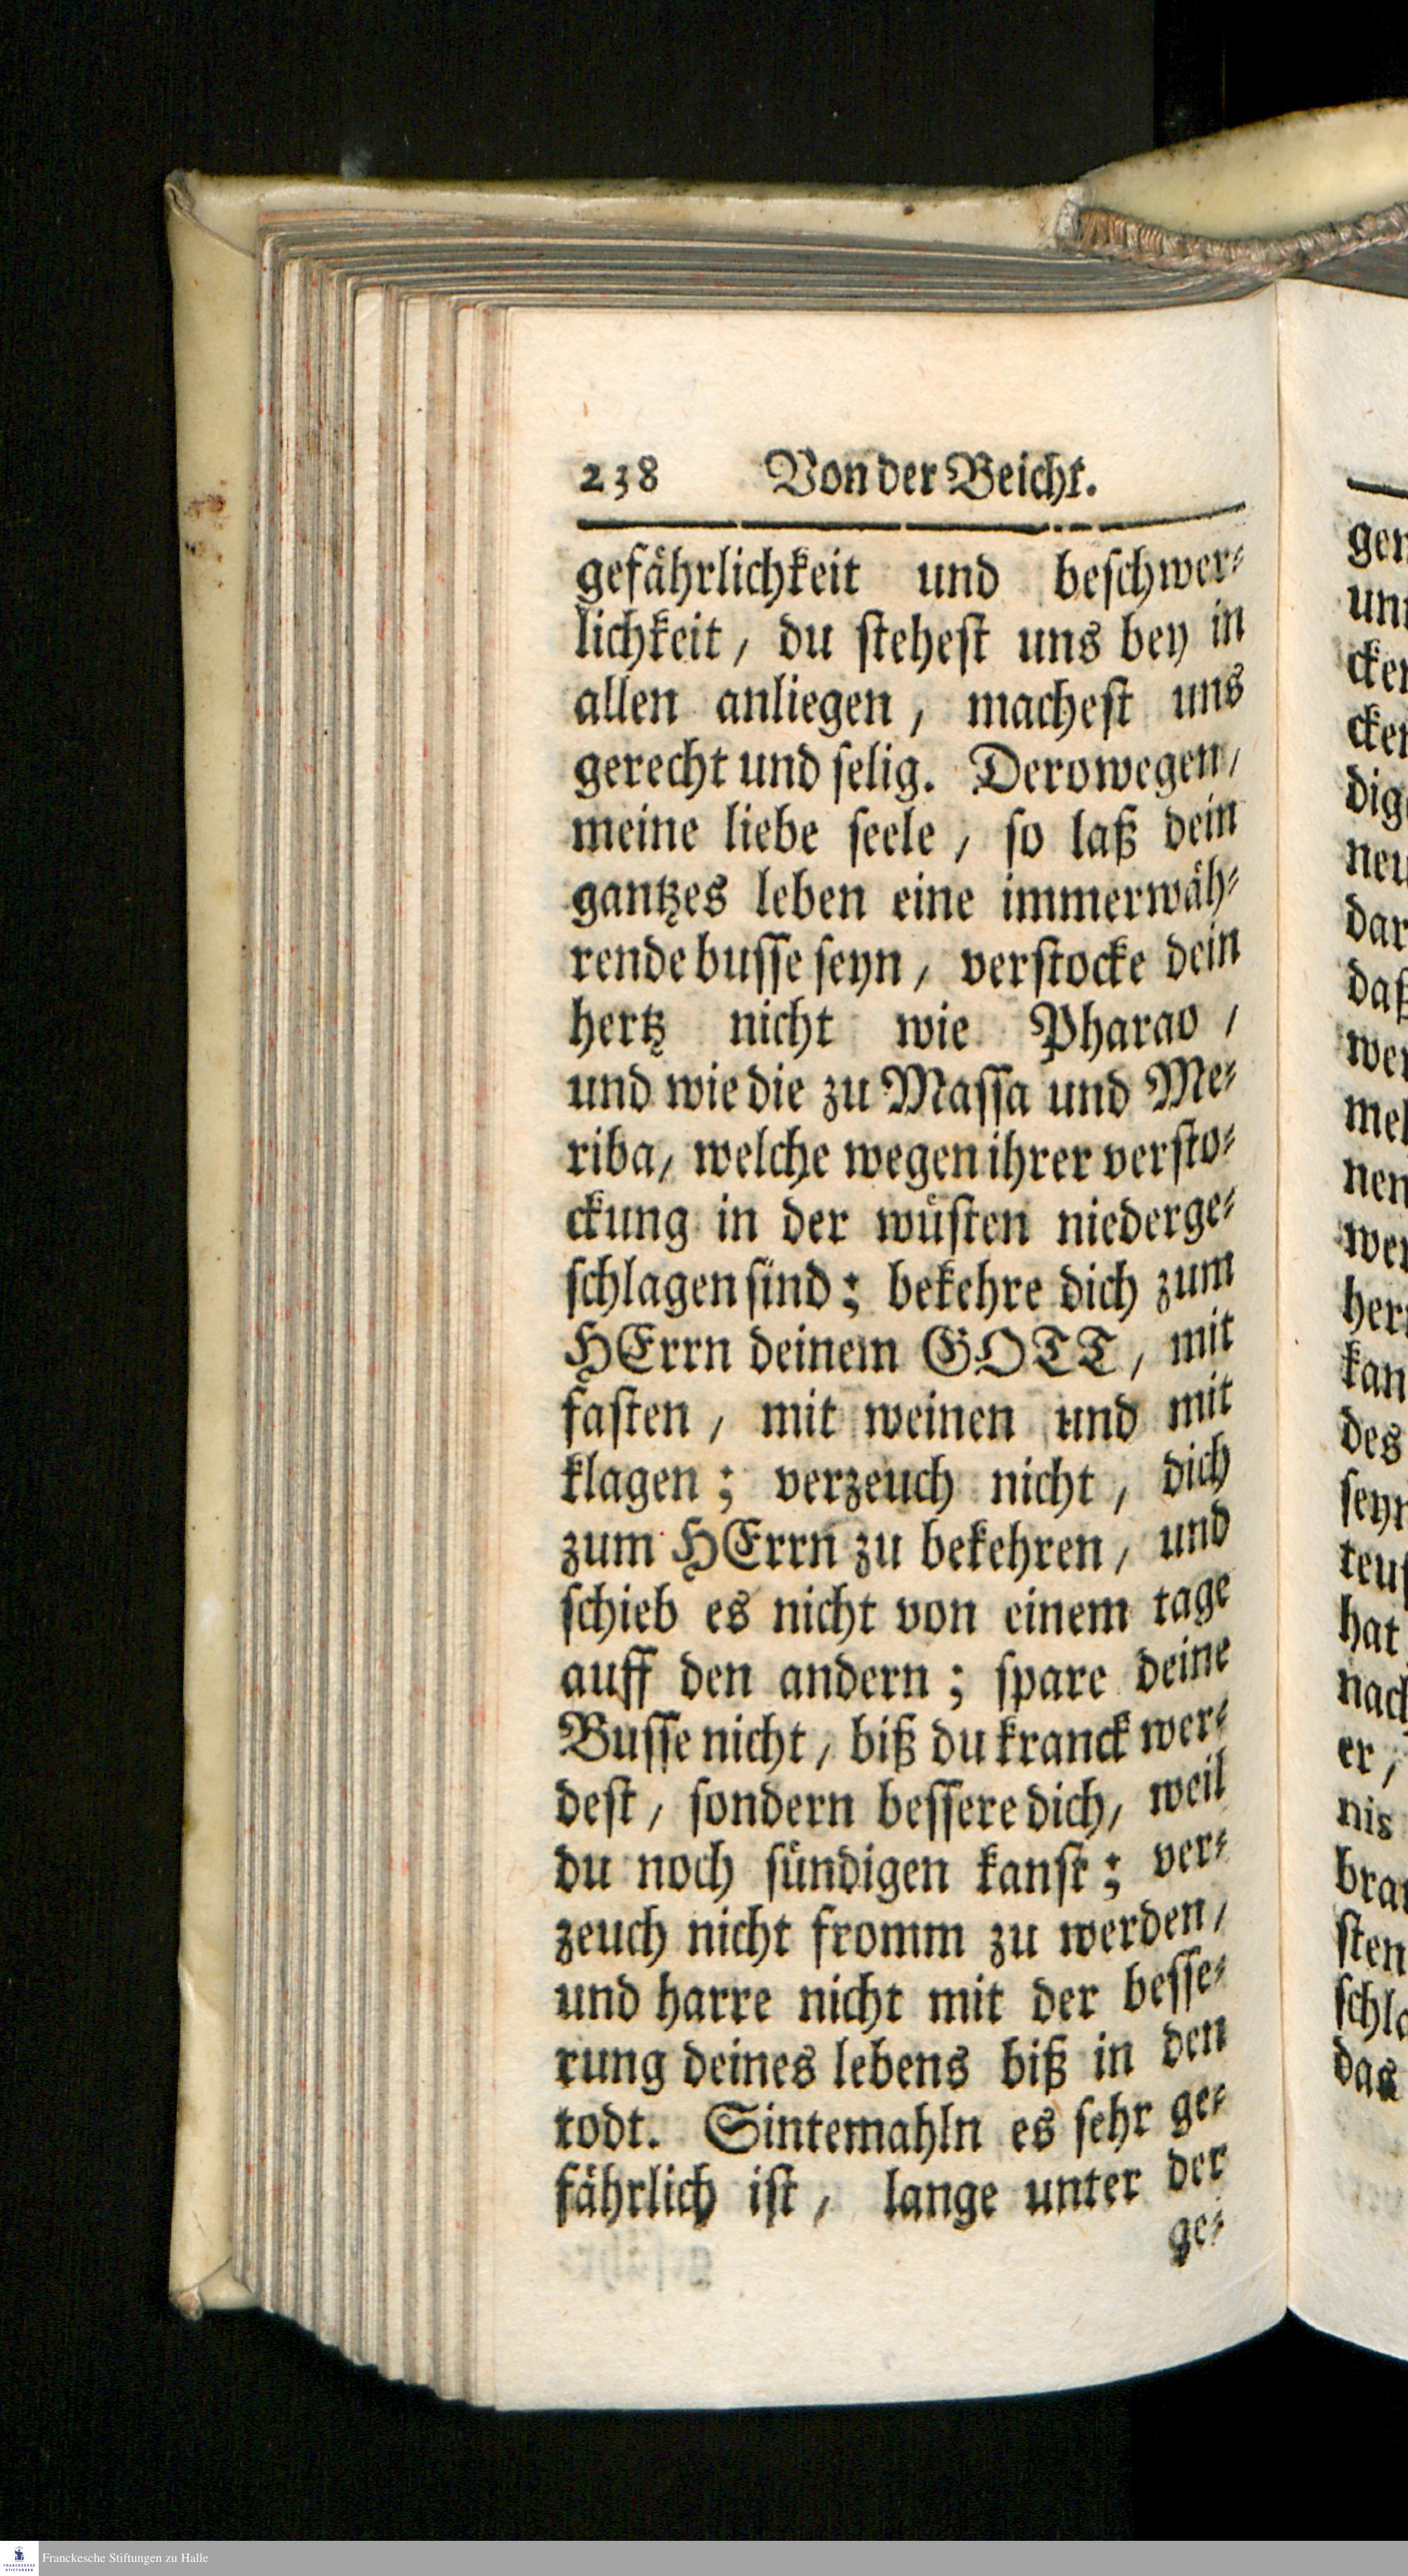 238 Von der Beicht.
gefährlichkeit und beschwer⸗
lichkeit / du stehest uns bey in
allen anliegen / machest uns
gerecht und selig. Derowegen /
meine liebe seele / so laß dein
gantzes leben eine immerwäh⸗
rende busse seyn / verstocke dein
hertz nicht wie Pharao /
und wie die zu Massa und Me⸗
riba / welche wegen ihrer versto⸗
ckung in der wüsten niederge⸗
schlagen sind; bekehre dich zum
HErrn deinem GOTT / mit
fasten / mit weinen und mit
klagen; verzeuch nicht / dich
zum HErrn zu bekehren / und
schieb es nicht von einem tage
auff den andern; spare deine
Busse nicht / biß du kranck wer⸗
dest / sondern bessere dich / weil
du noch sündigen kanst; ver⸗
zeuch nicht fromm zu werden /
und harre nicht mit der besse⸗
rung deines lebens biß in den
todt. Sintemahln es sehr ge⸗
fährlich ist / lange unter der
ge⸗
Franckesche Stiftungen zu Halle